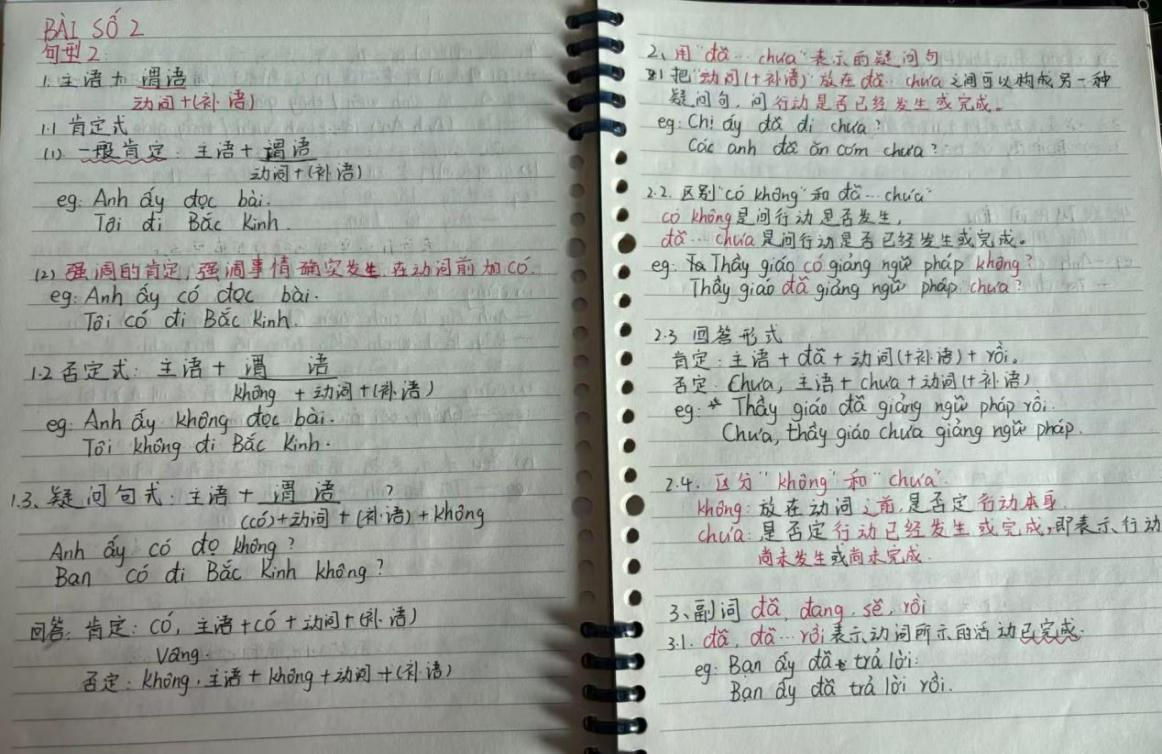 BÀI SỐ 2
句型2:
1. 主语 + 谓语
动词+(补语)
1.1 肯定式
(1) 一般肯定: 主语 + 谓语
动词+(补语)
eg: Anh ấy đọc bài.
Tôi đi Bắc Kinh.
(2) 强调的肯定, 强调事情确实发生, 在动词前加có.
eg: Anh ấy có đọc bài.
Tôi có đi Bắc Kinh.
1.2 否定式: 主语 + 谓语
không + 动词 +(补语)
eg: Anh ấy không đọc bài.
Tôi không đi Bắc Kinh.
1.3. 疑问句式: 主语 + 谓语 ?
(có)+动词 + (补语) + không
Anh ấy có đọ không?
Bạn có đi Bắc Kinh không?
回答: 肯定: có, 主语+có+动词+(补语)
Vâng.
否定: không, 主语 + không+动词+(补语)
2、用"đã… chưa"表示的疑问句
2.1 把"动词(+补语)"放在đã… chưa之间可以构成另一种
疑问句, 问行动是否已经发生或完成。
eg: Chị ấy đã đi chưa?
Các anh đã ăn cơm chưa?
2.2. 区别"có không"和 đã… chưa"
có không是问行动是否发生,
đã… chưa是问行动是否已经发生或完成。
eg: Thầy giáo có giảng ngữ pháp không?
Thầy giáo đã giảng ngữ pháp chưa?
2.3 回答形式
肯定: 主语 + đã + 动词(+补语) + rồi。
否定: Chưa, 主语 + chưa + 动词(+补语)
eg: Thầy giáo đã giảng ngữ pháp rồi.
Chưa, thầy giáo chưa giảng ngữ pháp.
2.4. 区分"không"和"chưa".
không: 放在动词之前, 是否定行动本身
chưa: 是否定行动已经发生或完成, 即表示行动
尚未发生或尚未完成.
3、副词 đã, đang, sẽ, rồi
3.1. đã, đã… rồi表示动词所示的活动已完成.
eg: Bạn ấy đã trả lời.
Bạn ấy đã trả lời rồi.